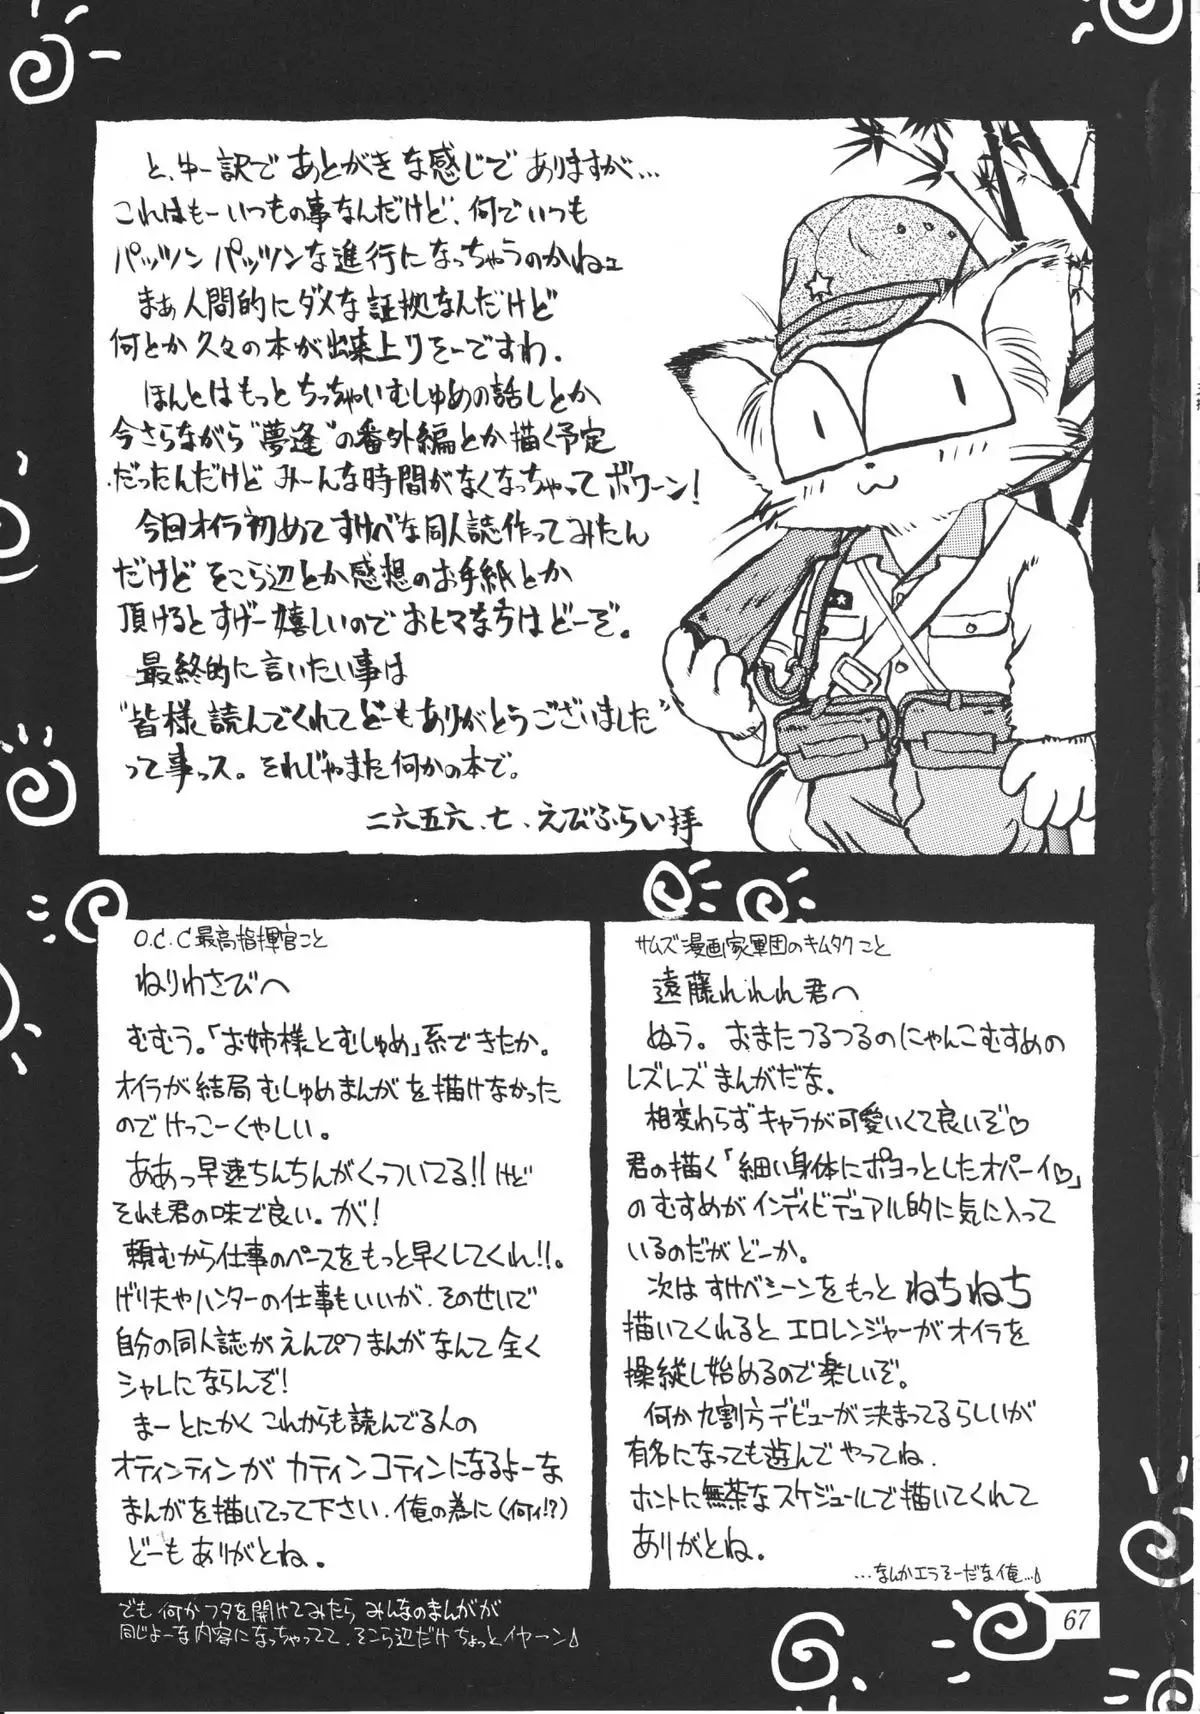 と、ゆー訳で あとがきな感じで ありますが…
これはもーいつもの事なんだけど、何でいつも
パッツン パッツンな進行になっちゃうのかねェ
まぁ人間的にダメな証拠なんだけど
何とか久々の本が出来上りそーですわ。
ほんとはもっと ちっちゃいむしゅめの話しとか
今さらながら"夢逢"の番外編とか描く予定
だったんだけど みーんな時間がなくなっちゃってボワーン!
今回オイラ初めてすけべな同人誌作ってみたん
だけど そこら辺とか感想のお手紙とか
頂けるとすげー嬉しいのでおヒマなちはどーぞ。
最終的に言いたい事は
"皆様読んでくれてどーもありがとうございました"
って事っス。それじゃまた何かの本で。
二六五六、七、えびふらい拝
O.C.C最高指揮官こと
ねりわさびへ
むむう。「お姉様とむしゅめ」系できたか。
オイラが結局むしゅめまんがを描けなかった
のでけっこーくやしい。
ああっ早速ちんちんがくっついてる!!けど
それも君の味で良い。が!
頼むから仕事のペースをもっと早くしてくれ!!。
げり夫やハンターの仕事もいいが、そのせいで
自分の同人誌がえんぴつまんがなんて全く
シャレにならんぞ!
まーとにかくこれからも読んでる人の
オティンティンがカティンコティンになるよーな
まんがを描いてって下さい、俺の為に(何ィ!?)
どーもありがとね。
でも何かフタを開けてみたら みんなのまんがが
同じよーな内容になっちゃってて、そこら辺だけちょっとイヤーン
サムズ漫画家軍団のキムタクこと
遠藤れれれ君へ
ぬう。おまたつるつるのにゃんこむすめの
レズレズまんがだな。
相変わらずキャラが可愛いくて良いぞ♡
君の描く「細い身体にポヨっとしたオパーイ♡」
のむすめがインディビデュアル的に気に入って
いるのだがどーか。
次はすけべシーンをもっとねちねち
描いてくれるとエロレンジャーがオイラを
操縦し始めるので楽しいぞ。
何か九割方デビューが決まってるらしいが
有名になっても遊んでやってね。
ホントに無茶なスケジュールで描いてくれて
ありがとね。
…なんかエラそーだな俺…
67